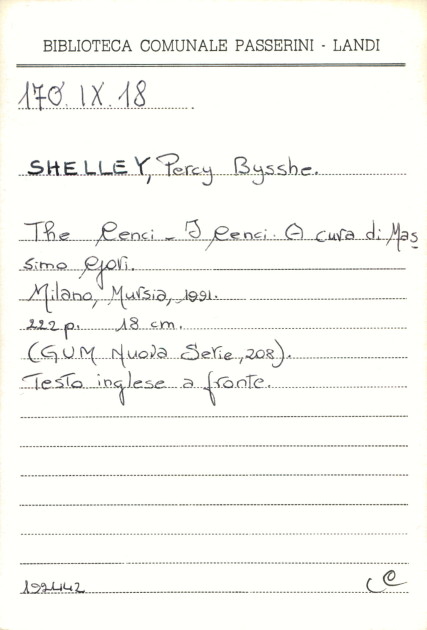 BIBLIOTECA COMUNALE PASSERINI - LANDI
170.IX.18
SHELLEY, Percy Bysshe.
The Cenci - I Cenci. A cura di Mas
simo Govi.
Milano, Mursia, 1991.
222 p. 18 cm.
(GUM Nuova Serie, 208).
Testo inglese a fronte.
192442